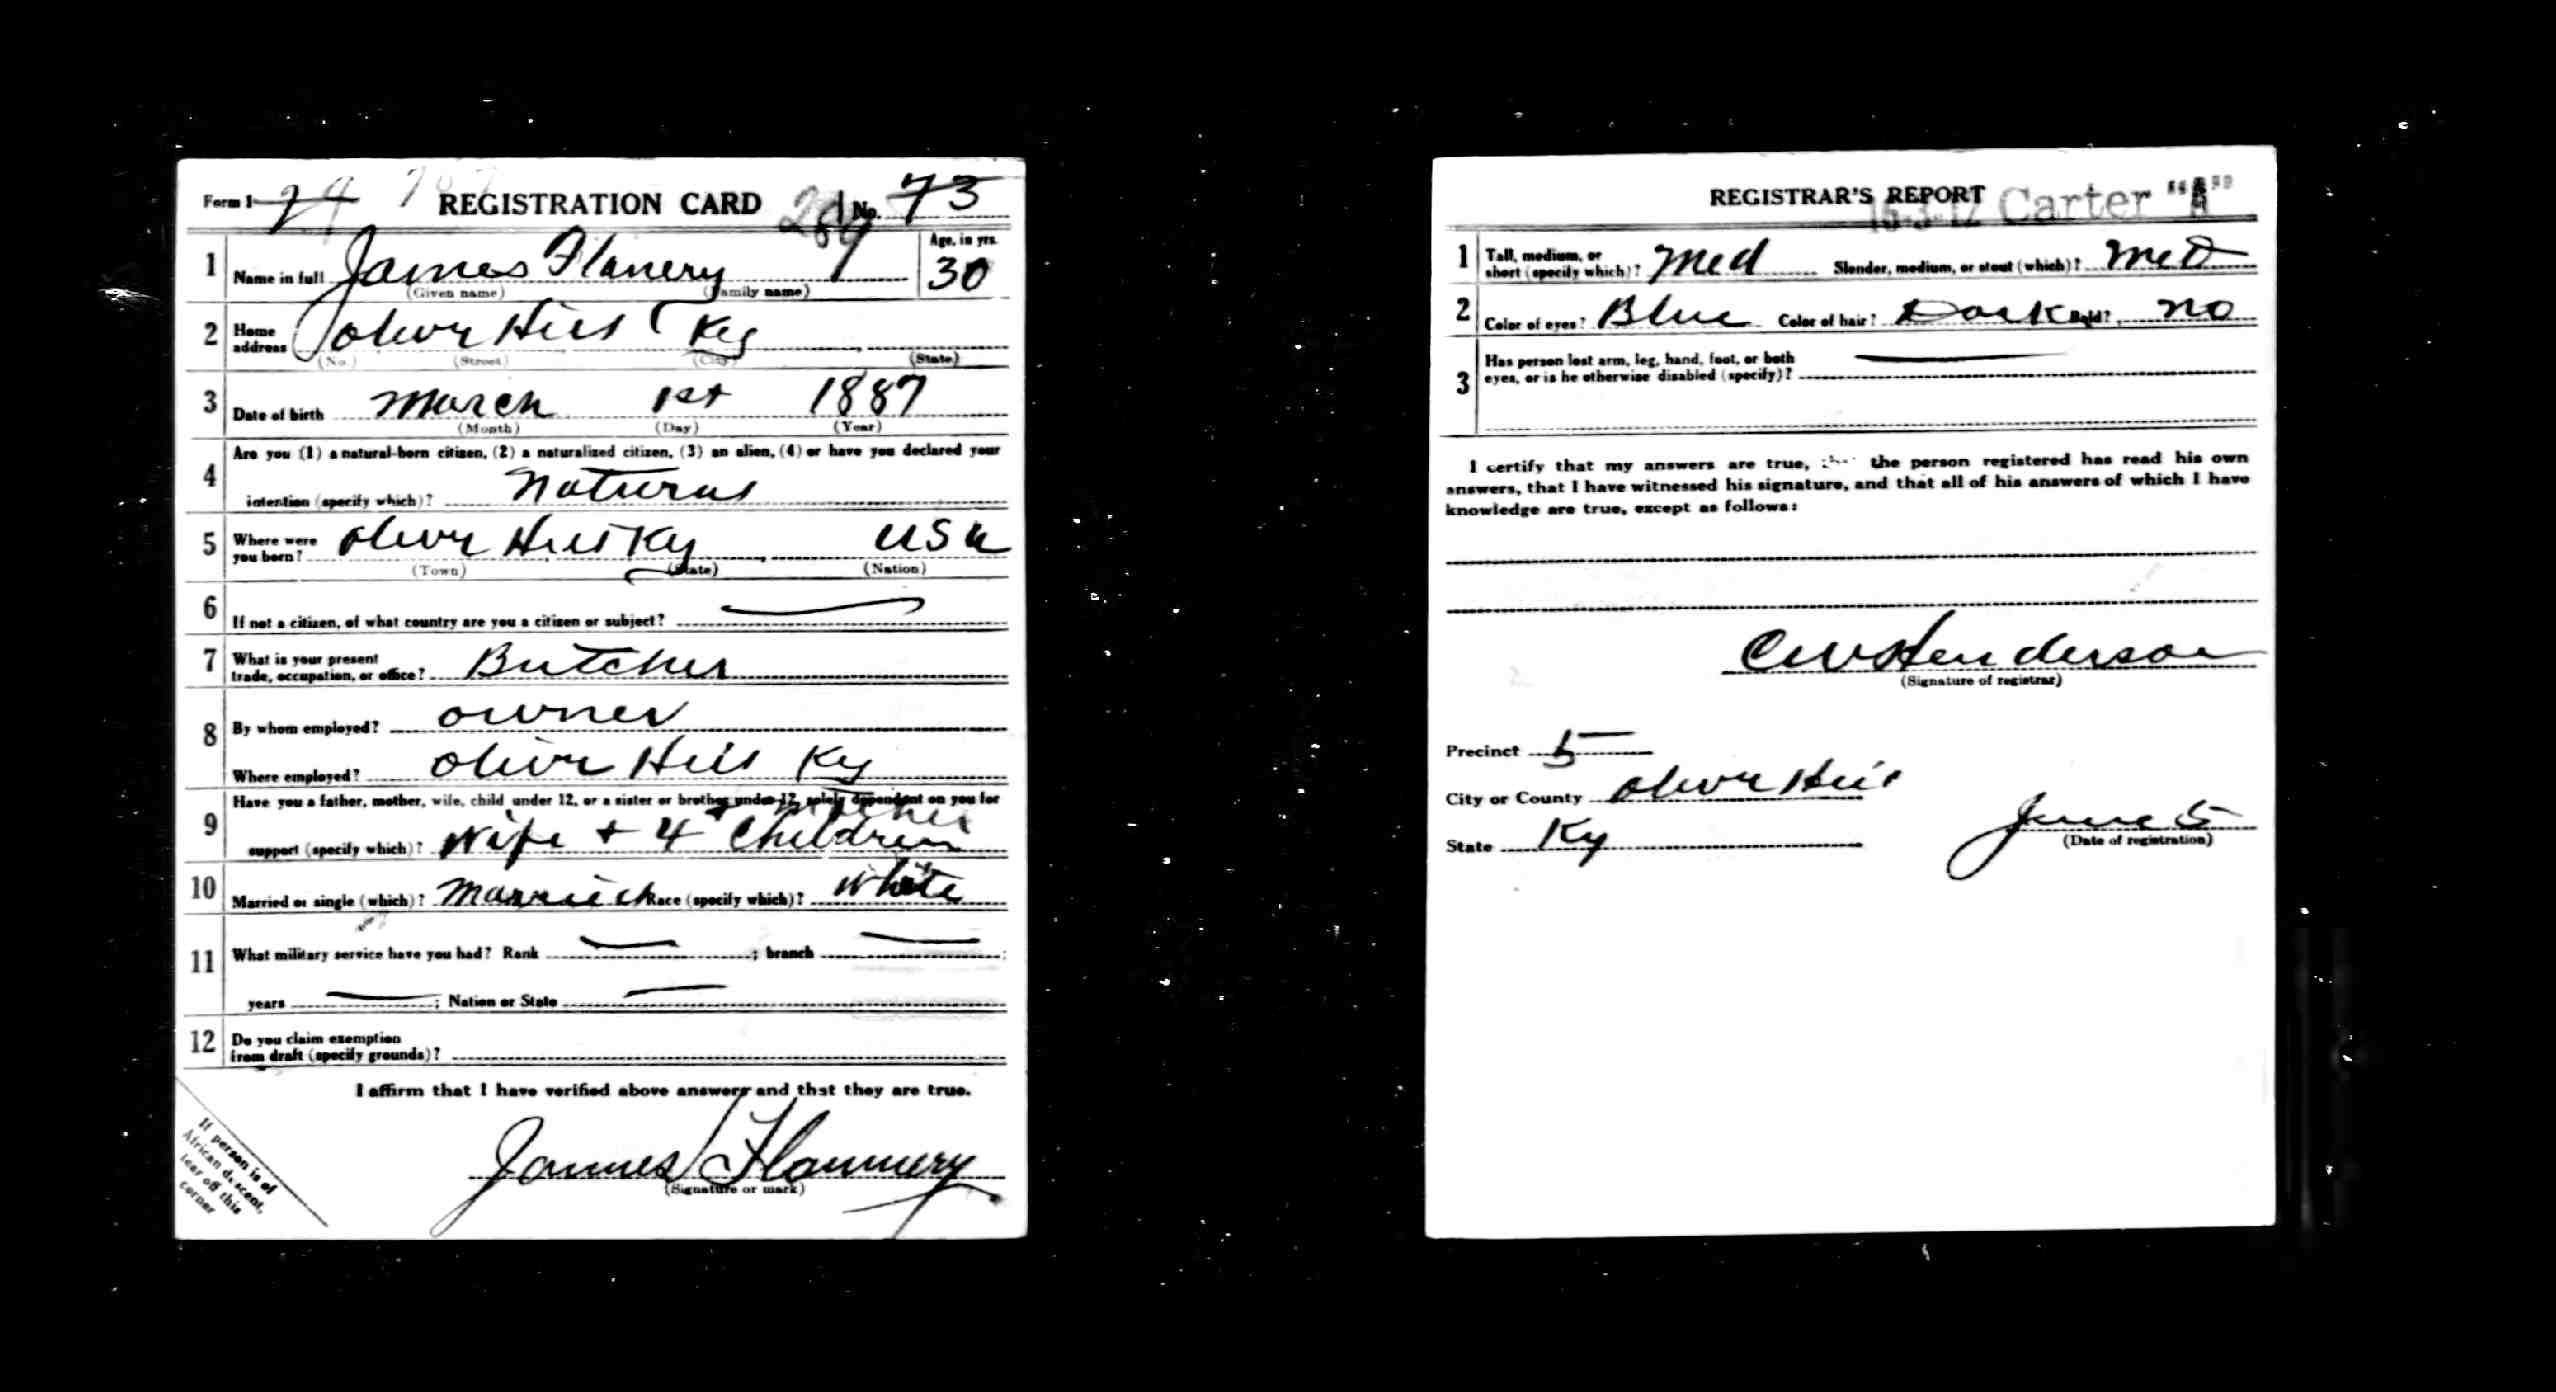 Form 1 24 REGISTRATION CARD 284 No. 73
1 Name in full James Flanery Age, in yrs. 30
(Given name) (Family name)
2 Home address Olive Hill Ky
(No.) (Street) (City) (State)
3 Date of birth March 1st 1887
(Month) (Day) (Year)
4 Are you (1) a natural-born citizen, (2) a naturalized citizen, (3) an alien, (4) or have you declared your
intention (specify which)? Natural
5 Where were you born? Olive Hill Ky USA
(Town) (State) (Nation)
6 If not a citizen, of what country are you a citizen or subject?
7 What is your present
trade, occupation, or office? Butcher
8 By whom employed? owner
Where employed? Olive Hill Ky
9 Have you a father, mother, wife, child under 12, or a sister or brother under 12, solely dependent on you for
+ mother
support (specify which)? Wife + 4 Children
10 Married or single (which)? Married Race (specify which)? White
11 What military service have you had? Rank ; branch ;
years ; Nation or State
12 Do you claim exemption
from draft (specify grounds)?
I affirm that I have verified above answers and that they are true.
James Flannery
(Signature or mark)
If person is of
African descent,
tear off this
corner
REGISTRAR'S REPORT
16-3-12 Carter "A"
1 Tall, medium, or
short (specify which)? Med Slender, medium, or stout (which)? Med
2 Color of eyes? Blue Color of hair? Dark Bald? No
3 Has person lost arm, leg, hand, foot, or both
eyes, or is he otherwise disabled (specify)?
I certify that my answers are true, that the person registered has read his own
answers, that I have witnessed his signature, and that all of his answers of which I have
knowledge are true, except as follows:
CW Henderson
(Signature of registrar)
Precinct 5
City or County Olive Hill
State Ky June 5
(Date of registration)